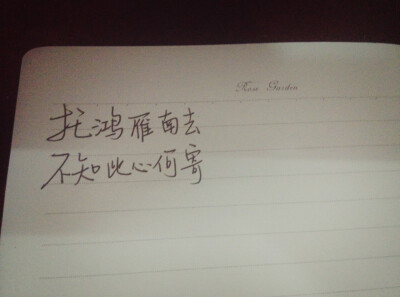 Garden
托鸿雁南去
不知此心何寄